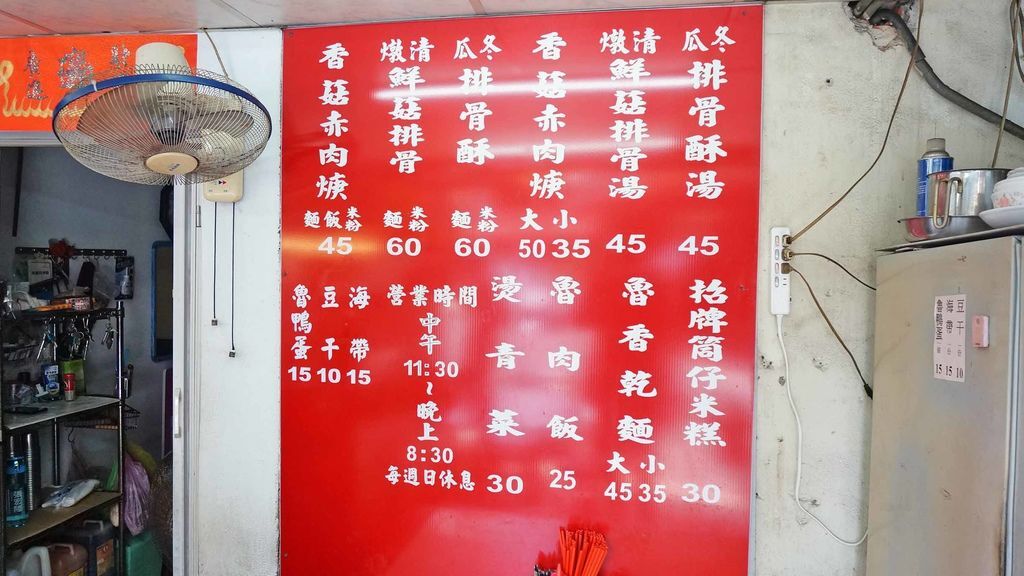 冬瓜排骨酥湯
45
清燉鮮菇排骨湯
45
香菇赤肉焿
大 小
50 35
冬瓜排骨酥
麵 米粉
60
清燉鮮菇排骨
麵 米粉
60
香菇赤肉焿
麵 飯 米粉
45
招牌筒仔米糕
30
魯香乾麵
大 小
45 35
魯肉飯
25
燙青菜
30
營業時間
中午
11:30
～
晚上
8:30
每週日休息
海帶
15
豆干
10
魯鴨蛋
15
豆干 10
海帶 15
魯鴨蛋 15